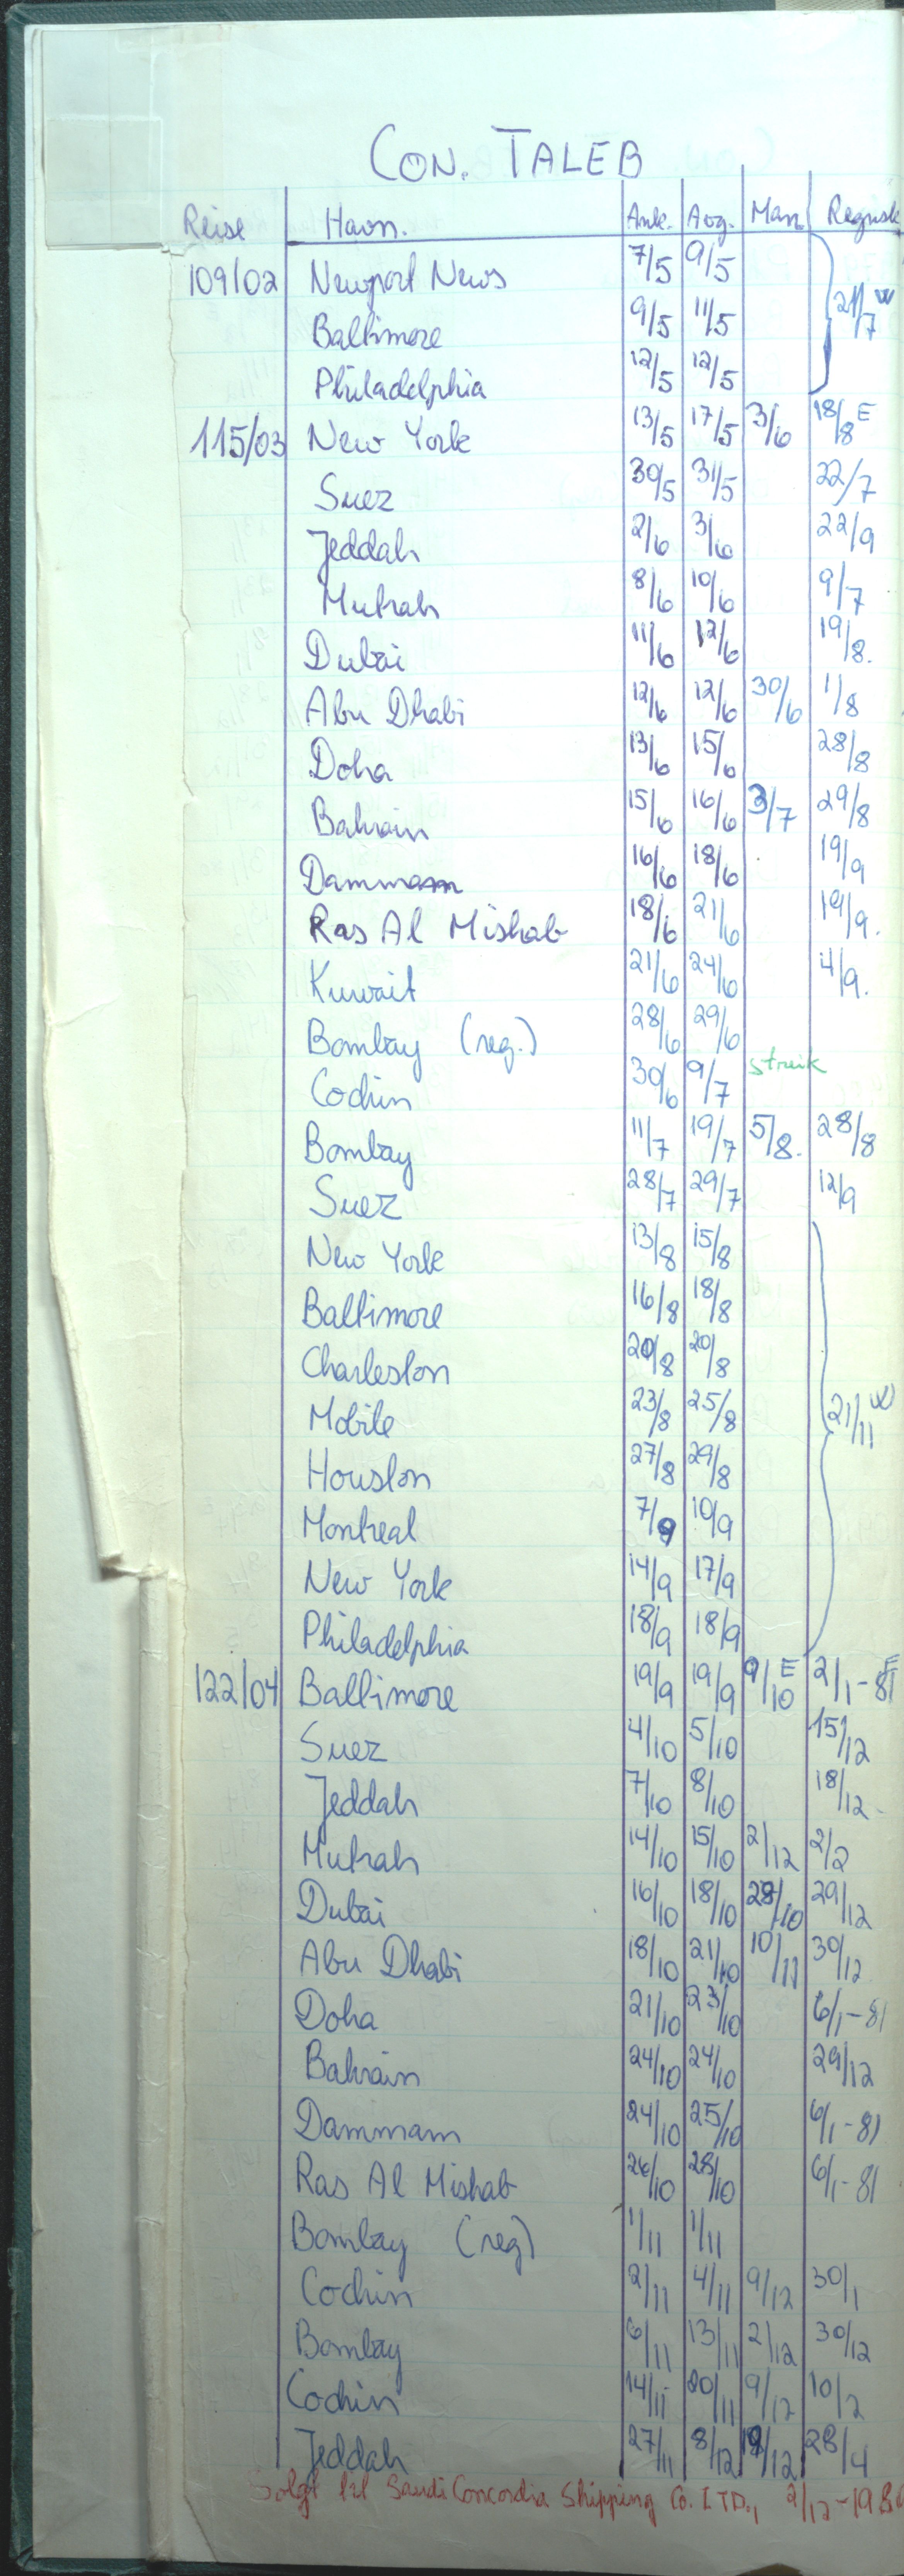 CON. TALEB
Reise Havn. Ank. Avg. Man Regnsk
109/02 Newport News 7/5 9/5
Baltimore 9/5 11/5 21/7 W
Philadelphia 12/5 12/5
115/03 New York 13/5 17/5 3/6 18/8 E
Suez 30/5 31/5 22/7
Jeddah 2/6 3/6 22/9
Mutrah 8/6 10/6 9/7
Dubai 11/6 12/6 19/8.
Abu Dhabi 12/6 12/6 30/6 1/8
Doha 13/6 15/6 28/8
Bahrain 15/6 16/6 3/7 29/8
Dammam 16/6 18/6 19/9
Ras Al Mishab 18/6 21/6 19/9.
Kuwait 21/6 24/6 4/9.
Bombay (reg.) 28/6 29/6
Cochin 30/6 9/7 streik
Bombay 11/7 19/7 5/8. 28/8
Suez 28/7 29/7 12/9
New York 13/8 15/8
Baltimore 16/8 18/8
Charleston 20/8 20/8
Mobile 23/8 25/8 21/11 W
Houston 27/8 29/8
Montreal 7/9 10/9
New York 14/9 17/9
Philadelphia 18/9 18/9
122/04 Baltimore 19/9 19/9 9/10 E 2/1-81 E
Suez 4/10 5/10 15/12
Jeddah 7/10 8/10 18/12.
Mutrah 14/10 15/10 2/12 2/2
Dubai 16/10 18/10 28/10 29/12
Abu Dhabi 18/10 21/10 10/11 30/12
Doha 21/10 23/10 6/1-81
Bahrain 24/10 24/10 29/12
Dammam 24/10 25/10 6/1-81
Ras Al Mishab 26/10 28/10 6/1-81
Bombay (reg) 1/11 1/11
Cochin 2/11 4/11 9/12 30/1
Bombay 6/11 13/11 2/12 30/12
Cochin 14/11 20/11 9/12 10/2
Jeddah 27/11 8/12 19/12 28/4
Solgt til Saudi Concordia Shipping Co. LTD., 2/12-1980